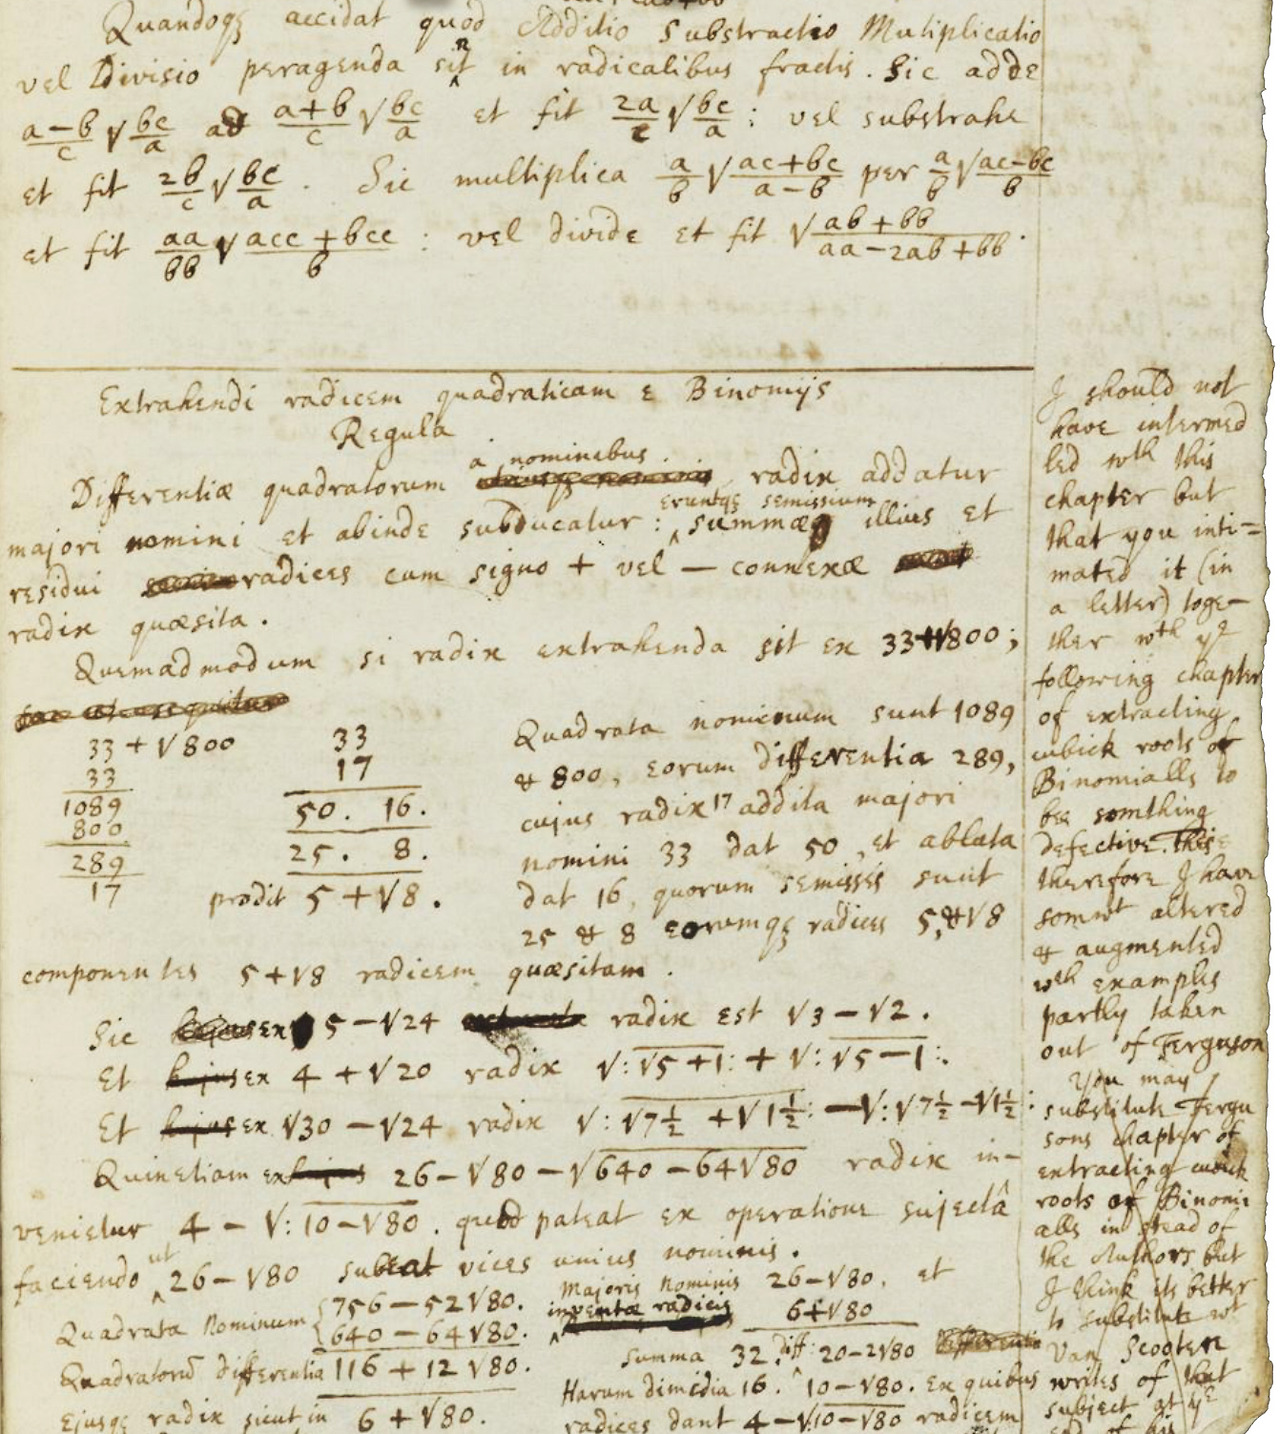 Quandoq₃ accidat quod Additio Substractio Mutiplicatio
vel Divisio peragenda sint in radicalibus fractis. Sic adde
a−b/c √bc/a ad a+b/c √bc/a et fit 2a/c √bc/a : vel substrahe
et fit 2b/c √bc/a . Sic multiplica a/b √ac+bc/a−b per a/b √ac−bc/b
et fit aa/bb √acc+bcc/b : vel divide et fit √ab+bb/aa−2ab+bb .
Extrahendi radicem quadraticam e Binomijs
Regula
a nominibus
Differentiæ quadratorum radix addatur
eruntq₃ semissium
majori nomini et abinde subducatur : summæ illius et
residui radices cum signo + vel − connexæ
radix quæsita .
Quemadmodum si radix extrahenda sit ex 33+√800;
33 + √800
33
1089
800
289
17
33
17
50. 16.
25. 8.
prodit 5+√8.
Quadrata nominum sunt 1089
& 800, eorum differentia 289,
cujus radix 17 addita majori
nomini 33 dat 50, et ablata
dat 16, quorum semisses sunt
25 & 8 eorumq₃ radices 5, & √8
componentes 5+√8 radicem quæsitam .
Sic ex 5−√24 radix est √3−√2.
Et ex 4+√20 radix √:√5+1: + √:√5−1:.
Et ex √30−√24 radix √:√7½+√1½: −√:√7½−√1½:
Quinetiam ex 26−√80−√640−64√80 radix in-
venietur 4−√:10−√80 . quod pateat ex operatione sujectâ
faciendo ut 26−√80 subeat vices unius nominis .
Quadrata Nominum {756−52√80.
640−64√80.
Quadratorū differentia 116+12√80.
Ejusq₃ radix sicut in 6+√80.
Majoris Nominis 26−√80. et
inventæ radicis 6+√80
summa 32. diff: 20−2√80
Harum dimidia 16. 10−√80. Ex quibus
radices dant 4−√10−√80 radicem
I should not
have intermed
led wth this
chapter but
that you inti=
mated it (in
a letter) toge-
ther wth ye
following chapter
of extracting
cubick roots of
Binomialls to
bee somthing
defective. This
therefore I have
somwt altered
& augmented
wth examples
partly taken
out of Ferguson
You may
substitute Fergu
sons chapter of
extracting cubick
roots of Binomi
alls in stead of
the Authors but
I think its better
to substitute wt
Van Scooten
writes of that
subject at ye
end of his